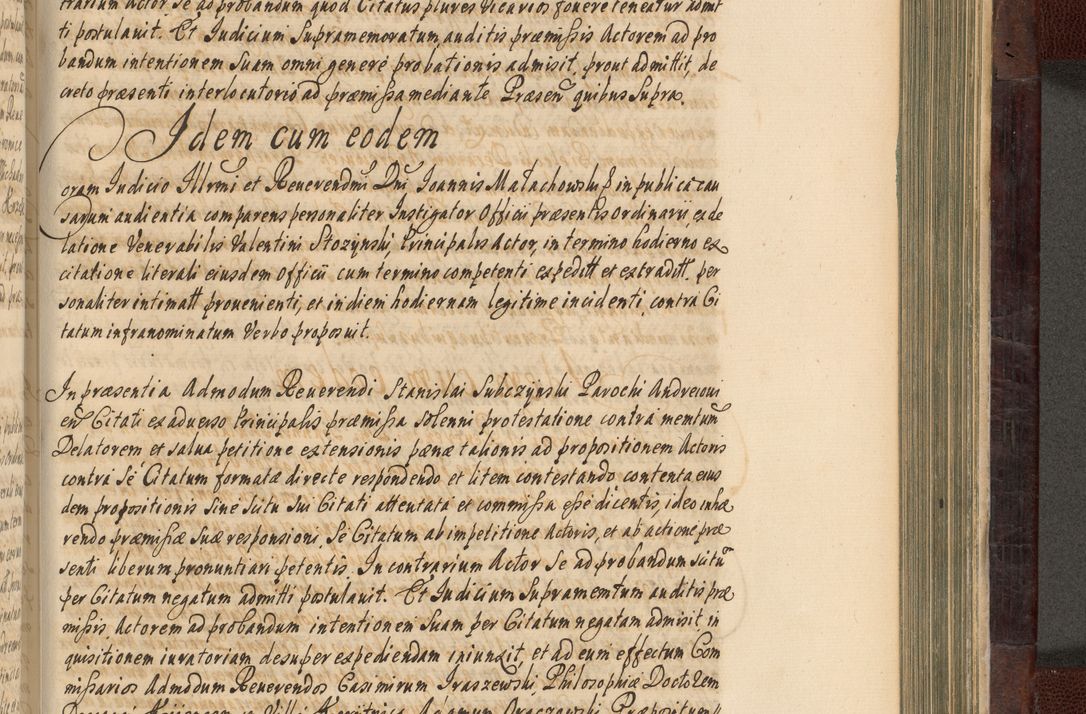 trarium Actor se ad probandum quod Citatus plures Vicarios fovere teneatur admit
ti postulavit. Et Iudicium Supramemoratum auditis præmissis Actorem ad pro
bandum intentionem Suam omni genere probationis admisit, prout admittit, de
creto præsenti interlocutorio ad præmissa mediante. Præsen quibus Supra.
Idem cum eodem
oram Iudicio Illrmi et Reverendmi Dni Ioannis Małachowski in publica cau
sarum audientia comparens personaliter Instigator Officii præsentis Ordinarii, ex de
latione Venerabilis Valentini Stozynski Principalis Actor, in termino hodierno ex
citatione literali eiusdem Officii cum termino competenti expeditt et extraditt, per
sonaliter intimatt provenienti, et in diem hodiernam legitime incidenti, contra Ci
tatum infranominatum Verbo proposuit.
In præsentia Admodum Reverendi Stanislai Subczynski Parochi Andreovi
en Citati ex adverso Principalis præmissa solenni protestatione contra mentum
Delatorem et salva petitione extensionis pænæ talionis ad propositionem Actoris
contra Se Citatum formatæ directe respondendo et litem contestando contenta eius
dem propositionis sine scitu sui Citati attentata et commissa esse dicentis, ideo inhæ
rendo præmissæ suæ responsioni, Se Citatum ab impetitione Actoris, et ab actione præ
senti liberum pronuntiari petentis. In contrarium Actor Se ad probandum scitu
per Citatum negatum admitti postulavit. Et Iudicium Supramemtum auditis præ
missis, Actorem ad probandum intentionem Suam per Citatum negatam admisit in
quisitionem iuratoriam desuper expediendam iniunxit, et ad eum effectum Com
missarios Admodum Reverendos Casimirum Iraszewski Philosophiæ Doctorem